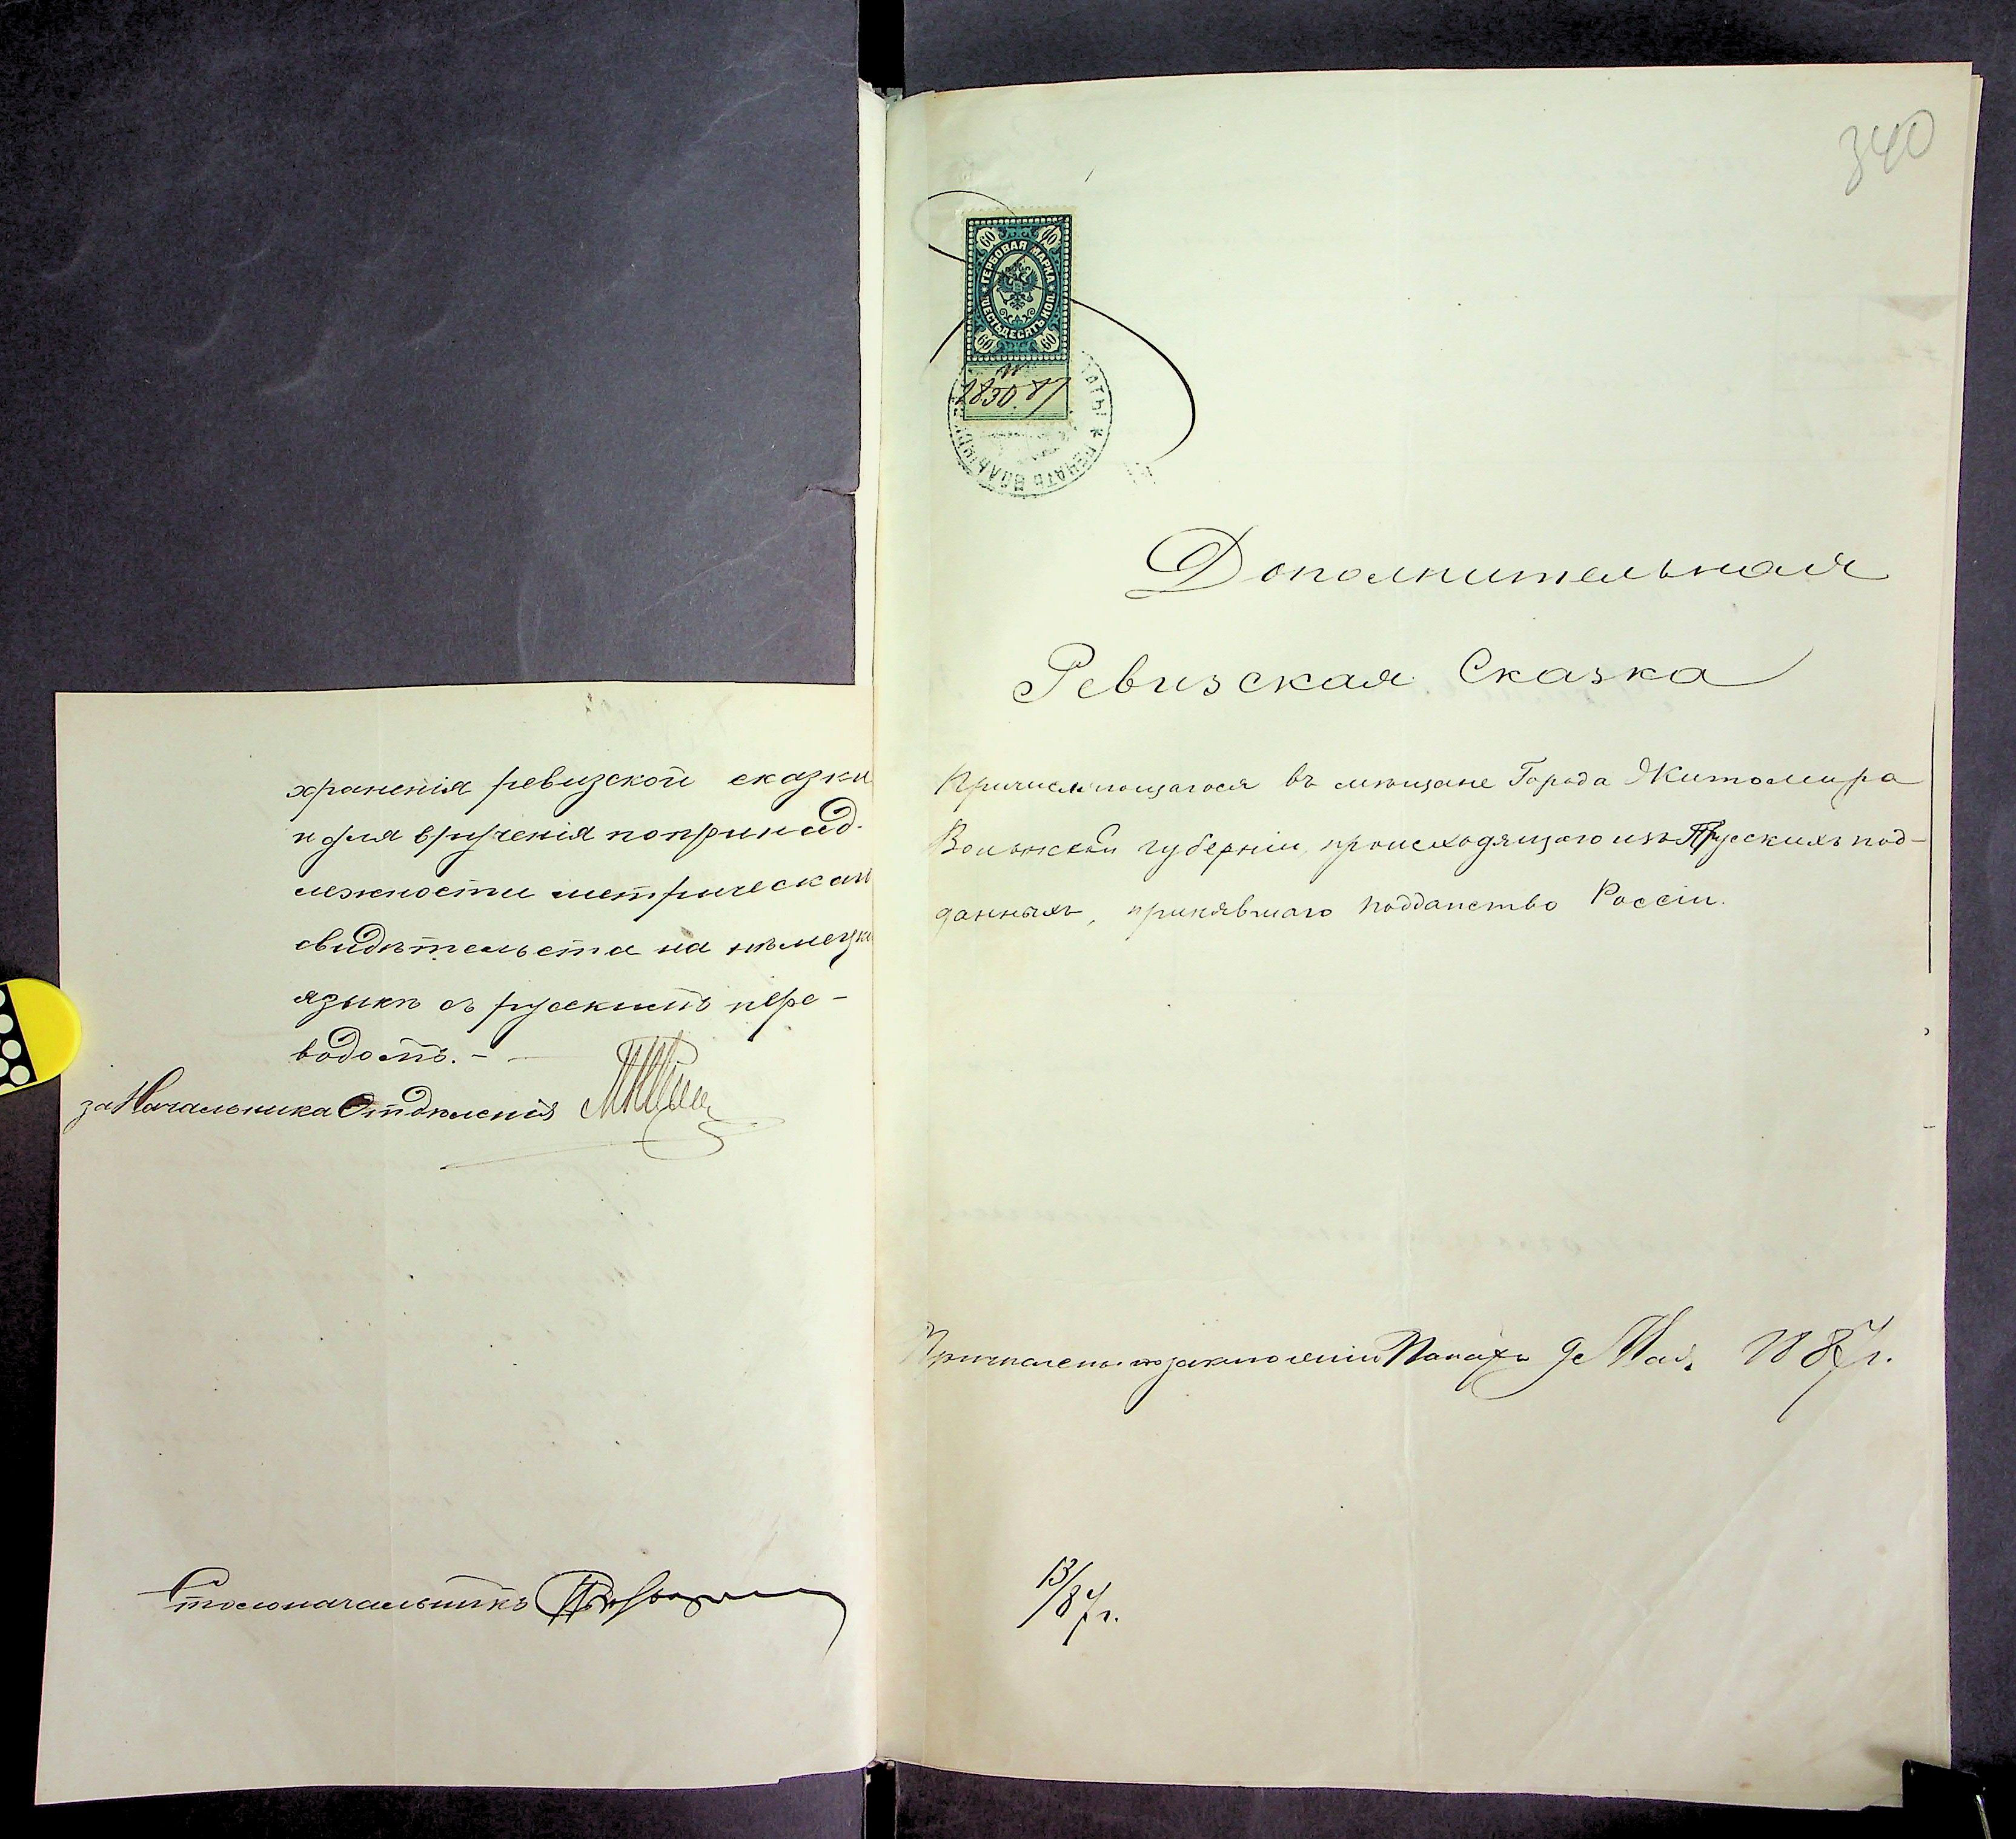 хранения ревизской сказки
и для вручения по принад-
лежности метрическаго
свидѣтельства на нѣмецко
языкѣ съ русскимъ пере-
водомъ. -
за Начальника Отдѣленія
Столоначальникъ
340
60 60
ГЕРБОВАЯ МАРКА
ШЕСТЬДЕСЯТЬ КОП.
60 60
ПЕЧАТЬ
Дополнительная
Ревизская Сказка
Причисляющагося въ мѣщане Города Житомира
Волынской губерніи, происходящаго изъ Прусскихъ под-
данныхъ, принявшаго подданство Россіи.
по заключенію Палаты 9 Мая 1887 г.
13/87 г.